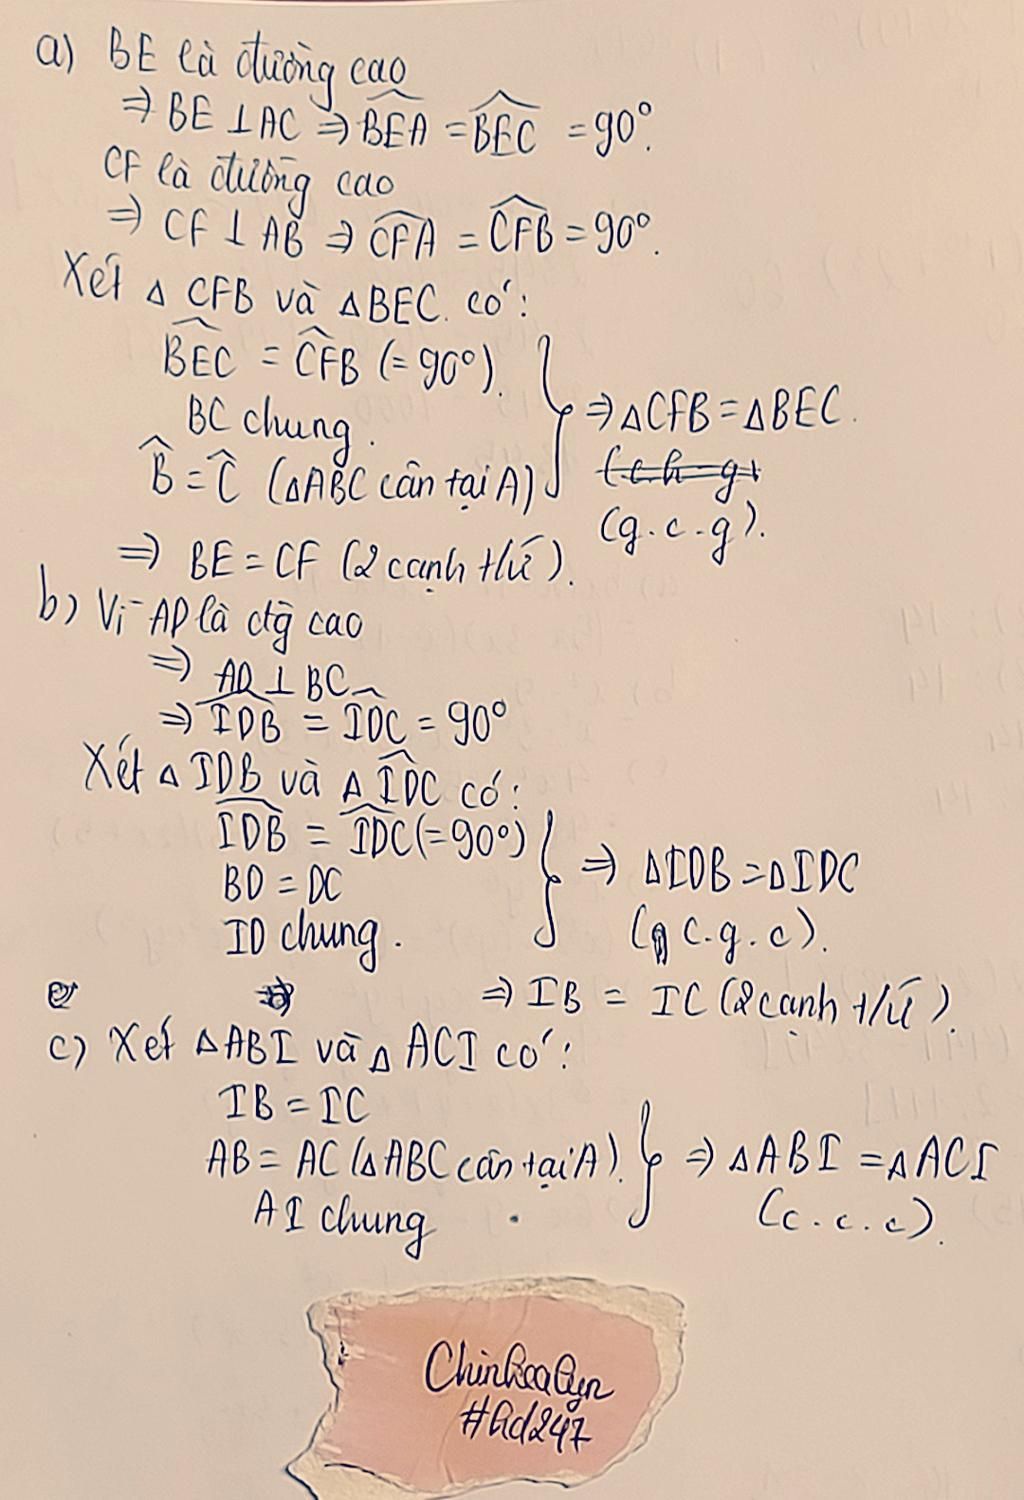 a) BE là đường cao
⇒ BE ⊥ AC ⇒ \widehat{BEA} = \widehat{BEC} = 90°.
CF là đường cao
⇒ CF ⊥ AB ⇒ \widehat{CFA} = \widehat{CFB} = 90°.
Xét △ CFB và △ BEC. có:
\widehat{BEC} = \widehat{CFB} (= 90°).
BC chung.
\widehat{B} = \widehat{C} (△ABC cân tại A)
} ⇒ △CFB = △BEC.
(g.c.g).
⇒ BE = CF (2 cạnh t/ứ).
b) Vì AD là đg cao
⇒ AD ⊥ BC
⇒ \widehat{IDB} = \widehat{IDC} = 90°
Xét △ IDB và △ \widehat{IDC} có:
\widehat{IDB} = \widehat{IDC} (= 90°)
BD = DC
ID chung.
} ⇒ △IDB = △IDC
(c.g.c).
⇒ IB = IC (2 cạnh t/ứ).
c) Xét △ABI và △ ACI có:
IB = IC
AB = AC (△ABC cân tại A).
AI chung
} ⇒ △ABI = △ACI
(c.c.c).